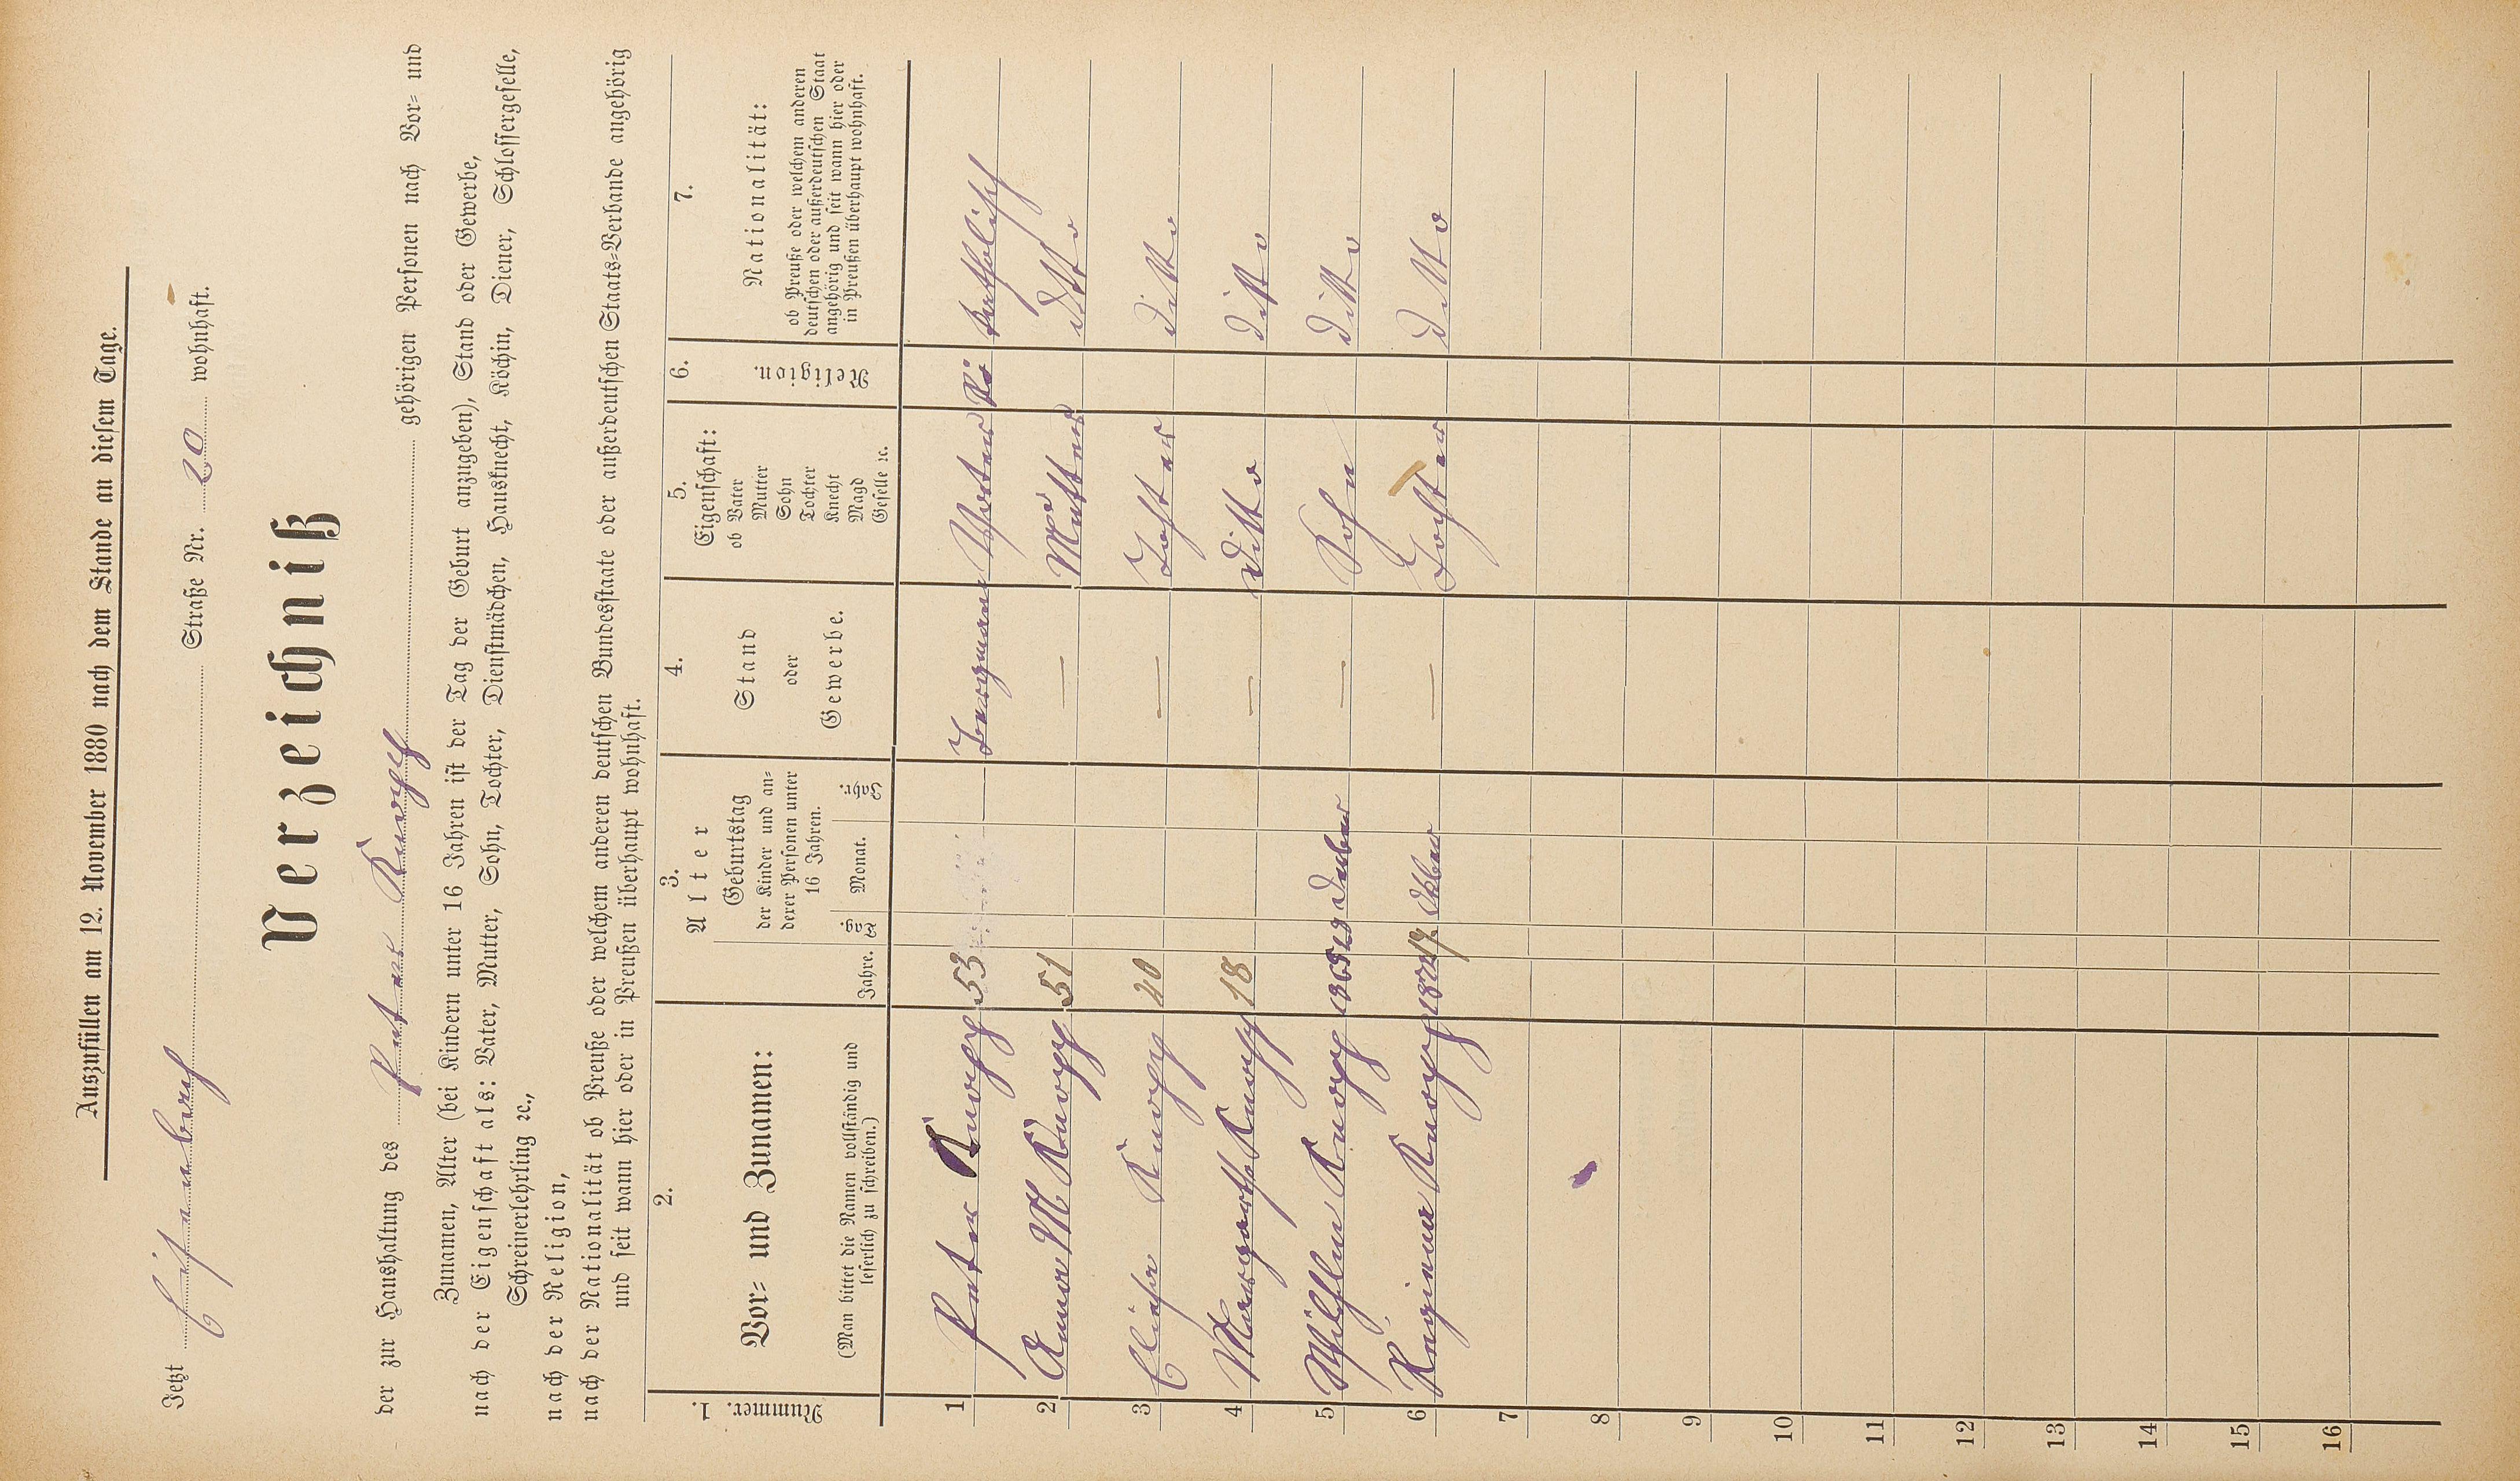 Auszufüllen am 12. November 1880 nach dem Stande an diesem Tage.
Jetzt Eschenbruch Straße Nr. 20 wohnhaft.
Verzeichniß
der zur Haushaltung des Peter Knopp gehörigen Personen nach Vor- und
Zunamen, Alter (bei Kindern unter 16 Jahren ist der Tag der Geburt anzugeben), Stand oder Gewerbe,
nach der Eigenschaft als: Vater, Mutter, Sohn, Tochter, Dienstmädchen, Hausknecht, Köchin, Diener, Schlossergeselle,
Schreinerlehrling ꝛc.,
nach der Religion,
nach der Nationalität ob Preuße oder welchem anderen deutschen Bundesstaate oder außerdeutschen Staats-Verbande angehörig
und seit wann hier oder in Preußen überhaupt wohnhaft.
1. Nummer.
2. Vor- und Zunamen:
(Man bittet die Namen vollständig und
leserlich zu schreiben.)
3. Alter
Jahre.
Geburtstag
der Kinder und an-
derer Personen unter
16 Jahren.
Tag. Monat. Jahr.
4. Stand
oder
Gewerbe.
5. Eigenschaft:
ob Vater
Mutter
Sohn
Tochter
Knecht
Magd
Geselle ꝛc.
6. Religion.
7. Nationalität:
ob Preuße oder welchem anderen
deutschen oder außerdeutschen Staat
angehörig und seit wann hier oder
in Preußen überhaupt wohnhaft.
1 Peter Knopp 53 Bergmann Vater Katholisch
2 Anna M Knopp 51 — Mutter ditto
3 Knopp 20 — Tochter ditto
4 Margaretha Knopp 18 — ditto ditto
5 Wilhelm Knopp — Sohn ditto
6 Regina Knopp 17 — Tochter ditto
7
8
9
10
11
12
13
14
15
16